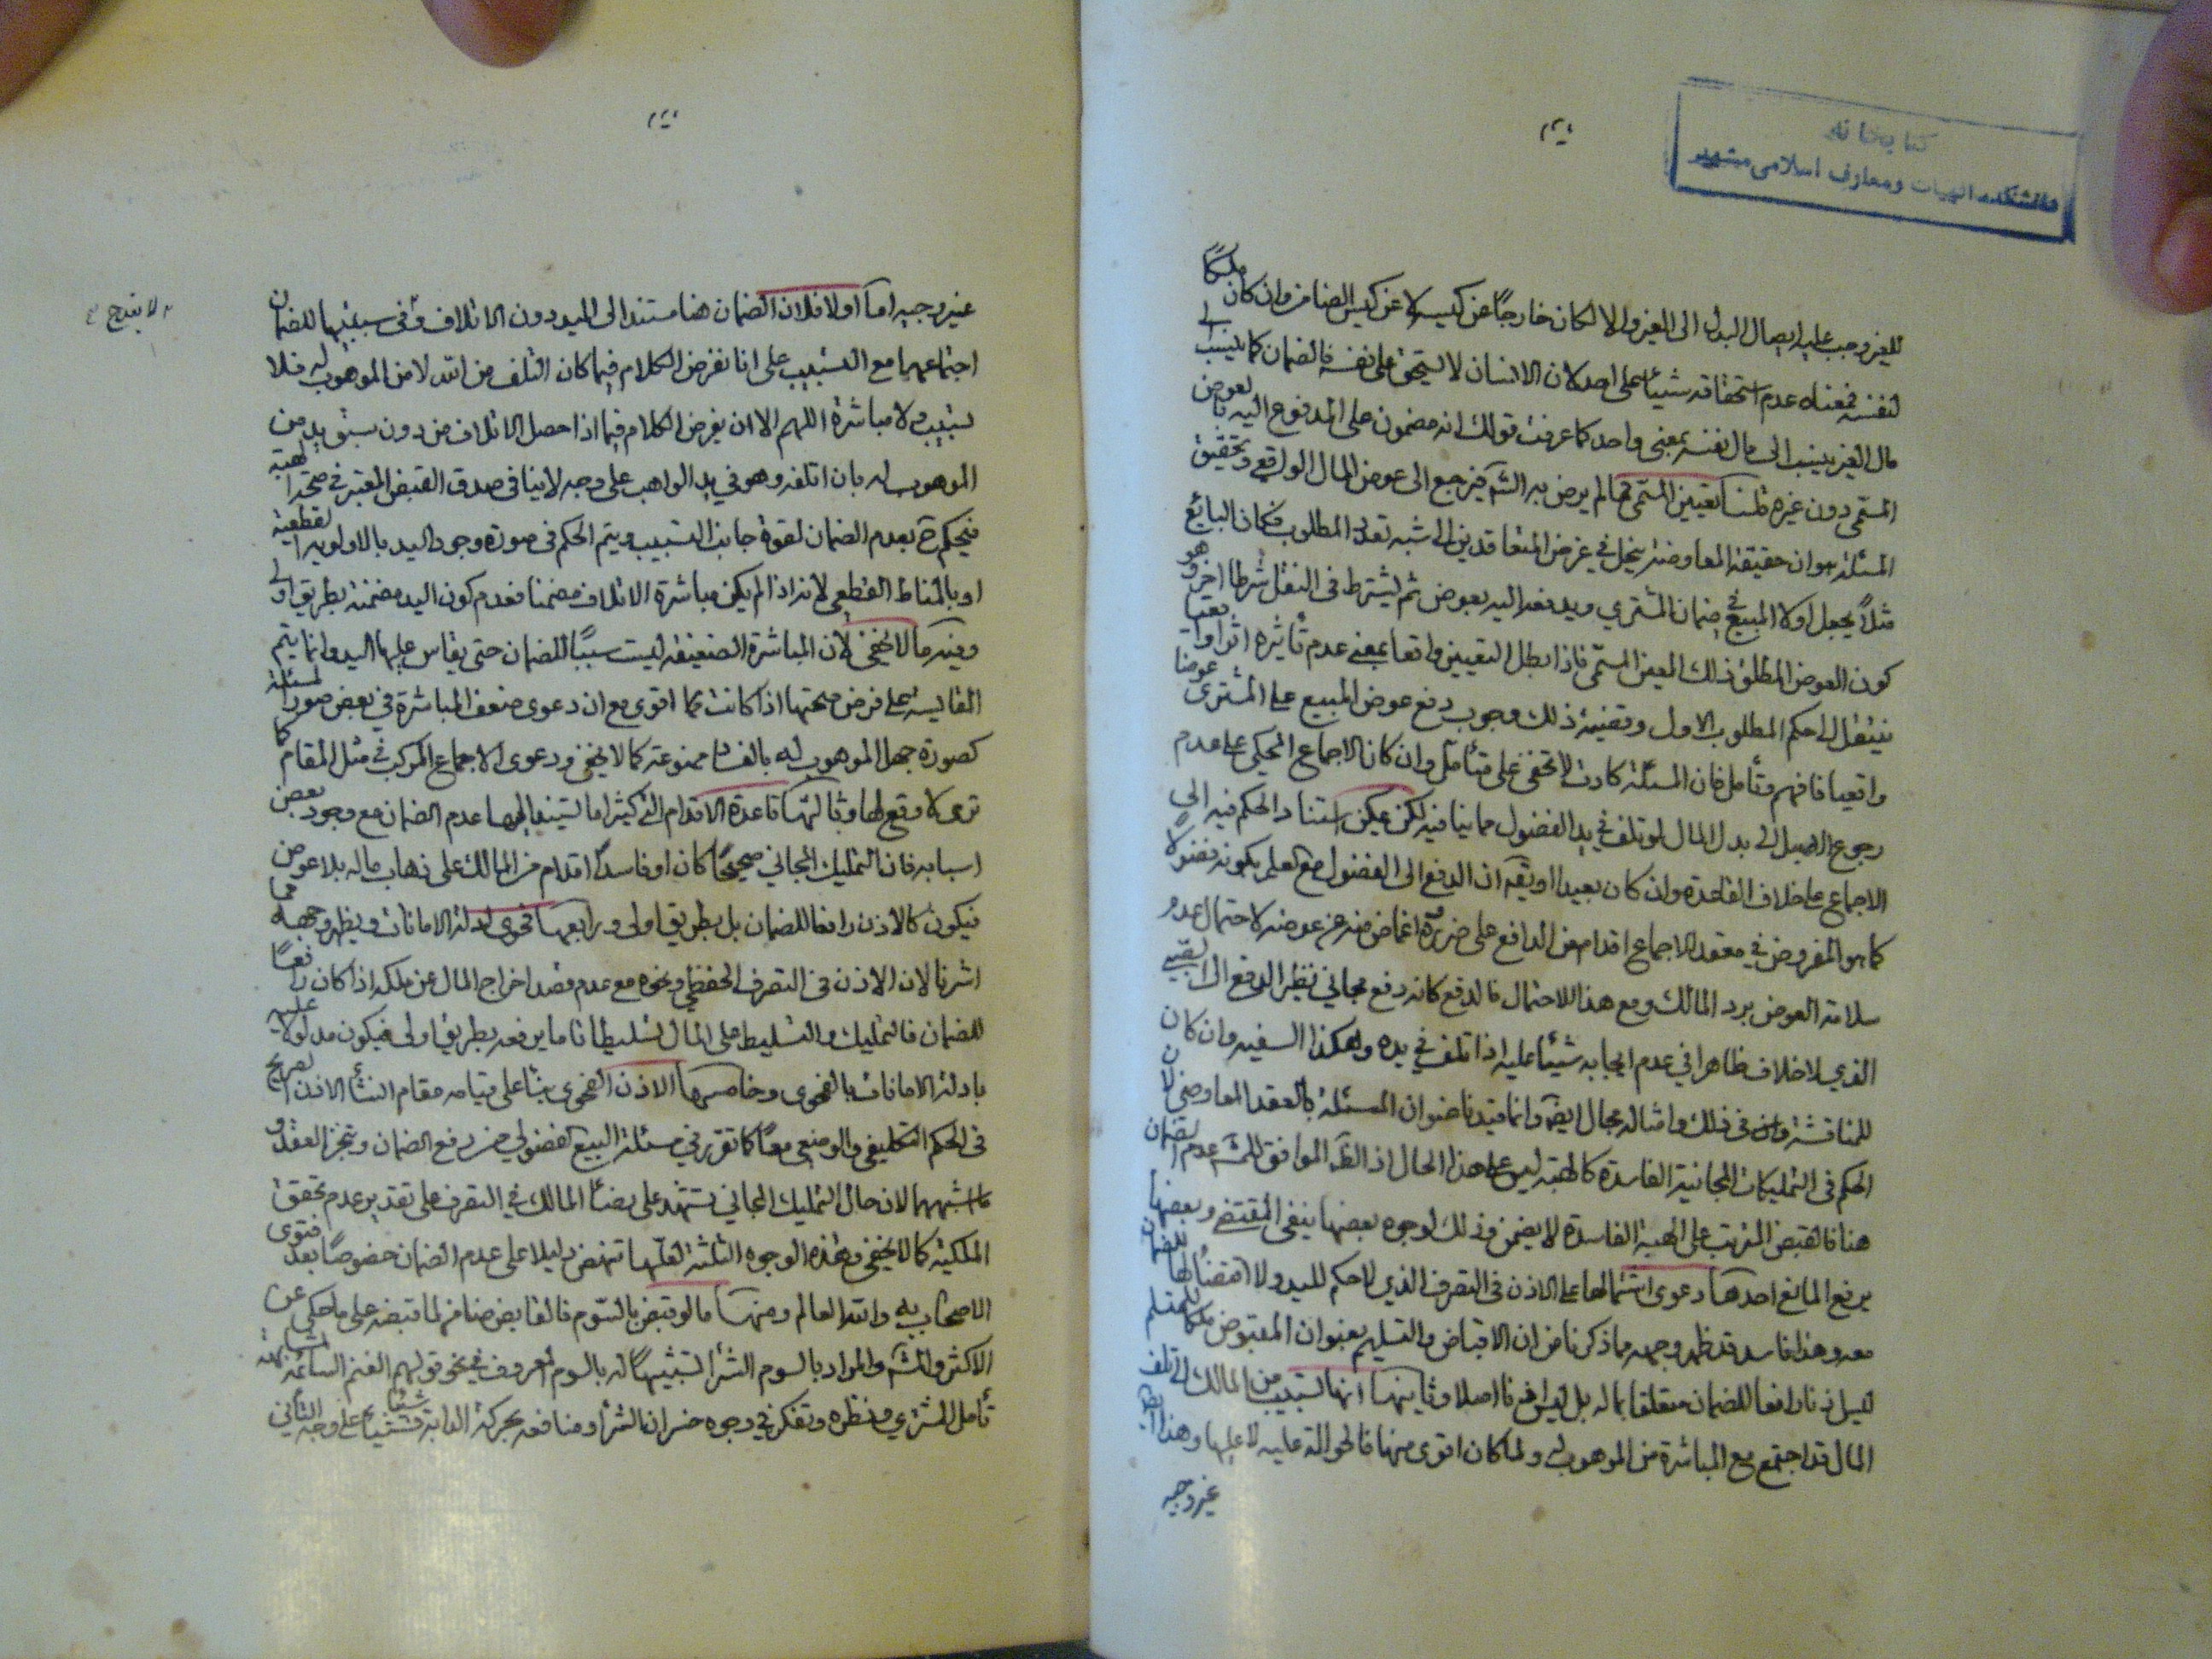 كتابخانه
دانشكده الهيات ومعارف اسلامى مشهد
للغير وجب عليه ايصال البدل الى الغير والا لكان خارجًا عن كيسه لا عن كيس الضامن وان كان ملكًا
لنفسه فمعناه عدم استحقاقه شيئا على احد لان الانسان لا يستحق على نفسه فالضمان كما ينسب الى
مال الغير ينسب الى مال نفسه بمعنى واحد كما عرفت قولك انه مضمون على المدفوع اليه بالعوض
المسمى دون غيره قلنا تعيين المسمى مما لم يرض به الشرع فيرجع الى عوض المال الواقعى وتحقيق
المسئلة هو ان حقيقة المعاوضة ينحل فى غرض المتعاقدين الى شبه تعدد المطلوب فكان البائع
مثلاً يجعل اولا المبيع فى ضمان المشتري ويدفعه اليه بعوض ثم يشترط فى النقل شرطا اخر وهو
كون العوض المطلق ذلك المعين المسمى فاذا بطل التعيين واقعا بمعنى عدم تأثيره اثرا واقعيا
ينتقل الى حكم المطلوب الاول وقضية ذلك وجوب دفع عوض المبيع على المشترى عوضا
واقعيا فافهم وتأمل فان المسئلة كادت لا تخفى على متأمل وان كان الاجماع المحكى على عدم
رجوع الاصيل الى بدل المال لو تلف فى يد الفضول مما ينافيه لكن يمكن استناد الحكم فيه الى
الاجماع على خلاف القاعدة وان كان بعيدا او يقه ان الدفع الى الفضول مع العلم بكونه فضولا
كما هو المفروض فى معقد الاجماع اقدام من الدافع على ضرره واغماض منه عن عوضه لاحتمال عدم
سلامة العوض برد المالك ومع هذا الاحتمال فالدفع كانه دفع مجاني نظير الدفع الى الصبى
الذي لا خلاف ظاهرا في عدم ايجابه شيئا عليه اذا تلف فى يده وهكذا السفيه وان كان
للمناقشة فى ذلك وامثاله مجال ايضا وانما قيدنا عنوان المسئلة بالعقد المعاوضى لان
الحكم فى التمليكات المجانية الفاسدة كالهبة ليس على هذا الحال اذ الظ الموافق للمش عدم الضمان
هنا فالقبض المترتب على الهبة الفاسدة لا يضمن وذلك لوجوه بعضها ينفى المقتضى وبعضها
يرفع المانع احدها دعوى اشتمالها على الاذن فى التصرف الذي لا حكم لليد ولا اقتضاء لها للضمان
معه وهذا فاسد قد ظهر وجهه مما ذكرنا من ان الاقباض والتسليم بعنوان المقبوض ملكا للمتسلم
ليس اذنا رافعا للضمان متعلقا بماله بل ليس اذنا اصلا وثانيها انها تسبيب من المالك الى تلف
المال قد اجتمع مع المباشرة من الموهوب له ولما كان اقوى منها فالحوالة عليه لا عليها وهذا ايضا
غير وجيه
غير وجيه اما اولا فلان الضمان هنا مستند الى اليد دون الاتلاف وفى سببيتها للضمان
اجتماعها مع التسبيب على انا نفرض الكلام فيما كان التلف من الله لا من الموهوب له فلا
تسبيب ولا مباشرة اللهم الا ان يفرض الكلام فيما اذا حصل الاتلاف من دون سبق يد من
الموهوب له بان اتلفه وهو في يد الواهب على وجه لا ينافى صدق القبض المعتبر فى صحة الهبة
فيحكم ح بعدم الضمان لقوة جانب التسبيب ويتم الحكم فى صورة وجود اليد بالاولوية القطعية
او بالمناط القطعى لانه اذا لم يكن مباشرة الاتلاف مضمنا فعدم كون اليد مضمنة بطريق اولى
وفيه ما لا يخفى لان المباشرة الضعيفة ليست سببًا للضمان حتى يقاس عليها اليد وانما يتم
المقايسة على فرض صحتها اذا كانت مما اقوى مع ان دعوى ضعف المباشرة فى بعض صور المسئلة
كصورة جهل الموهوب له بالفساد ممنوعة كما لا يخفى ودعوى الاجماع المركب فى مثل المقام كما
ترى لا وقع لها وثالثها قاعدة الاقدام التى كثيرا ما يستند اليها عدم الضمان مع وجود بعض
اسبابه فان التمليك المجاني صحيحًا كان او فاسدًا اقدام من المالك على ذهاب ماله بلا عوض
فيكون كالاذن رافعا للضمان بل بطريق اولى ورابعها فحوى ادلة الامانات ويظهر وجهه مما
اشرنا لان الاذن فى التصرف الحفظى ونحوه مع عدم قصد اخراج المال عن ملكه اذا كان رافعًا
للضمان فالتمليك والتسليط على المال تسليطا تاما يرفعه بطريق اولى فيكون مدلولا عليه
بادلة الامانات بالفحوى وخامسها الاذن الفحوى بناء على قيامه مقام الاذن الصريح
فى الحكم التكليفى والوضعى معًا كما تقرر فى مسئلة البيع الفضولي من رفع الضمان وتنجز العقد و
ما اشبههما لان حال التمليك المجاني تشهد على رضا المالك في التصرف على تقدير عدم تحقق
الملكية كما لا يخفى وهذه الوجوه الثلثة لعلها تنهض دليلا على عدم الضمان خصوصًا بعد فتوى
الاصحاب به والله العالم ومنها ما لو قبض بالسوم فالقابض ضامن لما قبضه على ما حكى عن
الاكثر والمش والمراد بالسوم الشراء تشبيهًا له بالسوم المعروف فى نحو قولهم الغنم السائمة لمشابهة
تأمل المشتري ونظره وتفكره في وجوه خسران الشراء ومنافعه بحركة الدابة شيئا على وجه التأني